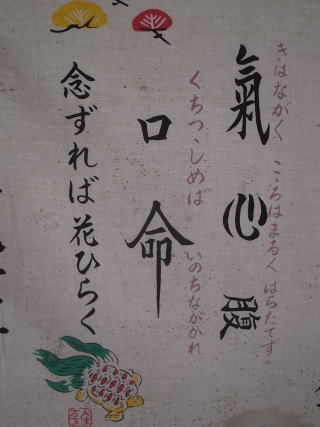 きはながく こころはまるく はらたてず
氣 心 腹
くちつゝしめば いのちながかれ
口 命
念ずれば花ひらく